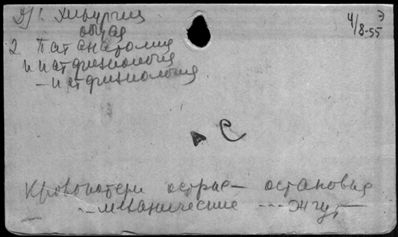 1. Хирургия
общая
4/8-55
2. Патанатомия
и патфизиология
- патфизиология
С
Кровопотери острые - остановка
- механические --- жгут